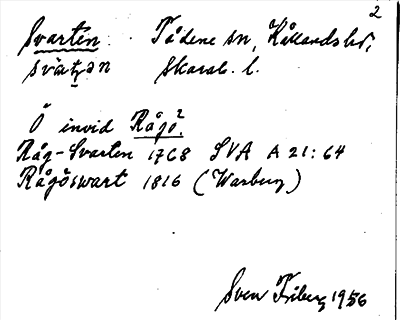 2
Svarten . Tådene sn, Kållands hd,
svat̩ən Skarab. l.
Ö invid Rågö2.
Råg-Svarten 1768 SVA A 21:64
Rågöswart 1816 (Warberg)
Sven Friberg 1956